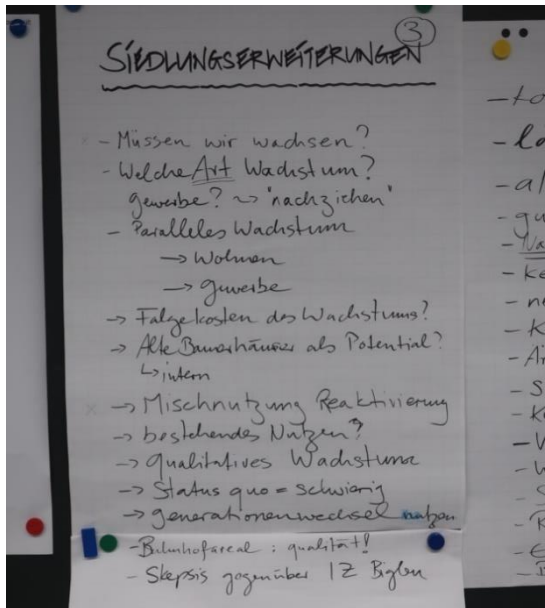 3
SIEDLUNGSERWEITERUNGEN
- Müssen wir wachsen?
- Welche Art Wachstum?
gewerbe? ~> "nachziehen"
- Paralleles Wachstum
-> Wohnen
-> gewerbe
-> Folgekosten des Wachstums?
-> Alte Bauerhäuser als Potential?
↳ intern
-> Mischnutzung Reaktivierung
-> bestehendes Nutzen?
-> qualitatives Wachstum
-> Status quo = schwierig
-> generationenwechsel nutzen
- Bahnhofareal : qualität!
- Skepsis gegenüber IZ Biglen